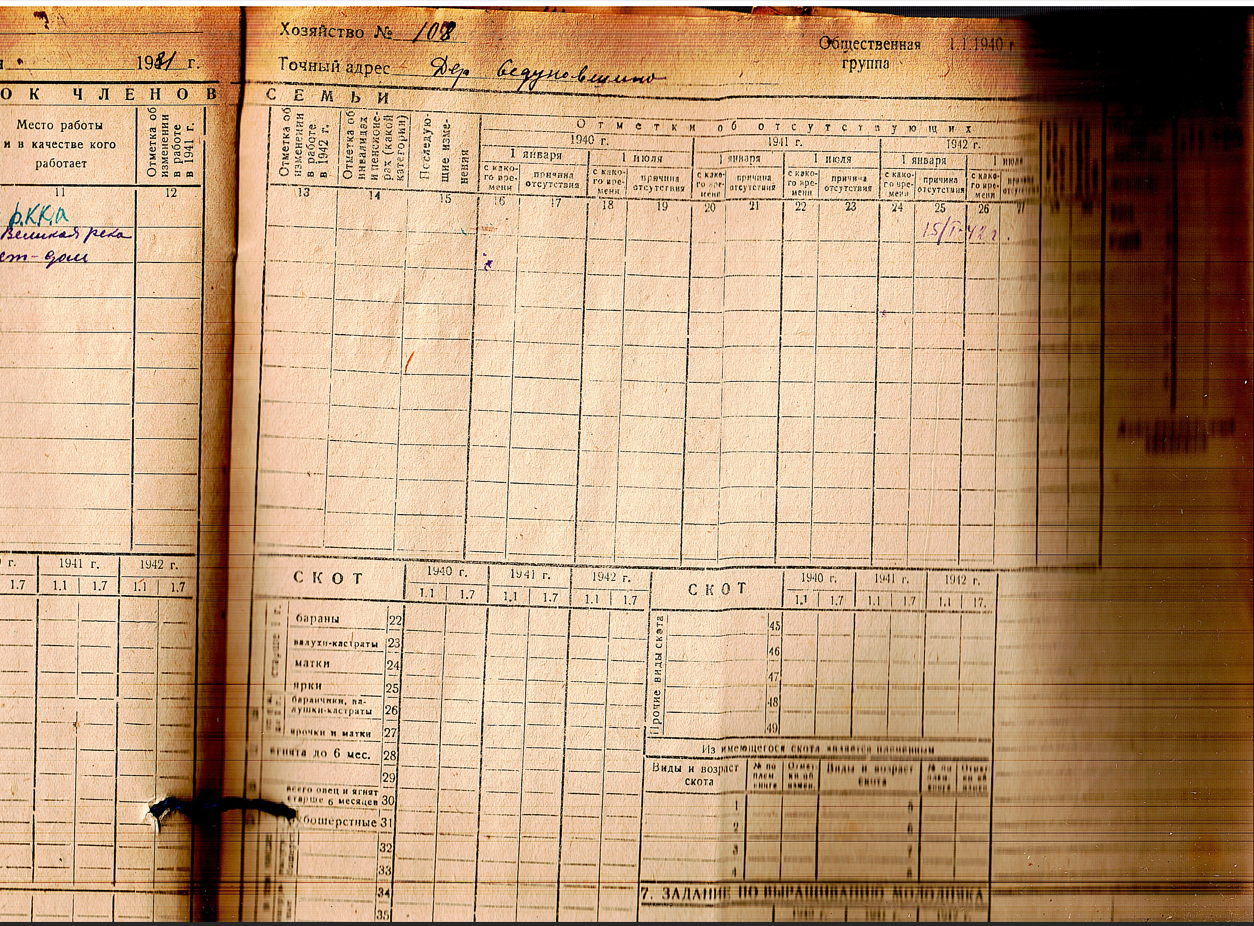 Хозяйство № 108
Общественная группа 1.1.1940 г
1941 г.
Точный адрес Дер Федуловщино
ОК ЧЛЕНОВ СЕМЬИ
Место работы и в качестве кого работает
Отметка об изменении в работе в 1941 г.
Отметка об изменении в работе в 1942 г.
Отметка об инвалидах и пенсионерах (какой категории)
Последующие изменения
Отметки об отсутствующих
1940 г. 1941 г. 1942 г.
1 января 1 июля 1 января 1 июля 1 января 1 июля
с какого времени причина отсутствия с какого времени причина отсутствия с какого времени причина отсутствия с какого времени причина отсутствия с какого времени причина отсутствия с какого времени
11 12 13 14 15 16 17 18 19 20 21 22 23 24 25 26 27
р.К.К.А
Великая река
15/I-42 г.
ст-дом
г. 1941 г. 1942 г.
1.7 1.1 1.7 1.1 1.7
СКОТ 1940 г. 1941 г. 1942 г.
1.1 1.7 1.1 1.7 1.1 1.7
старше 1 г.
бараны 22
валухи-кастраты 23
матки 24
ярки 25
баранчики, валушки-кастраты 26
ярочки и матки 27
ягнята до 6 мес. 28
29
всего овец и ягнят старше 6 месяцев 30
убошерстные 31
32
33
34
35
СКОТ 1940 г. 1941 г. 1942 г.
1.1 1.7 1.1 1.7 1.1 17.
Прочие виды скота
45
46
47
48
49
Из имеющегося скота является племенным
Виды и возраст скота № по плем. книге Отметки об измен. Виды и возраст скота № по плем. книге Отметки об измен.
1 5
2 6
3 7
4 8
7. ЗАДАНИЕ ПО ВЫРАЩИВАНИЮ МОЛОДНЯКА
1940 г. 1941 г. 1942 г.